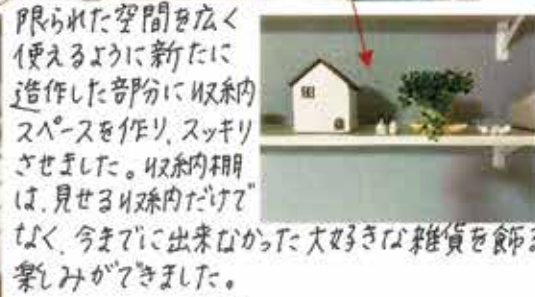 限られた空間を広く
使えるように新たに
造作した部分に収納
スペースを作り、スッキリ
させました。収納棚
は、見せる収納だけで
なく、今までに出来なかった大好きな雑貨を飾る
楽しみができました。